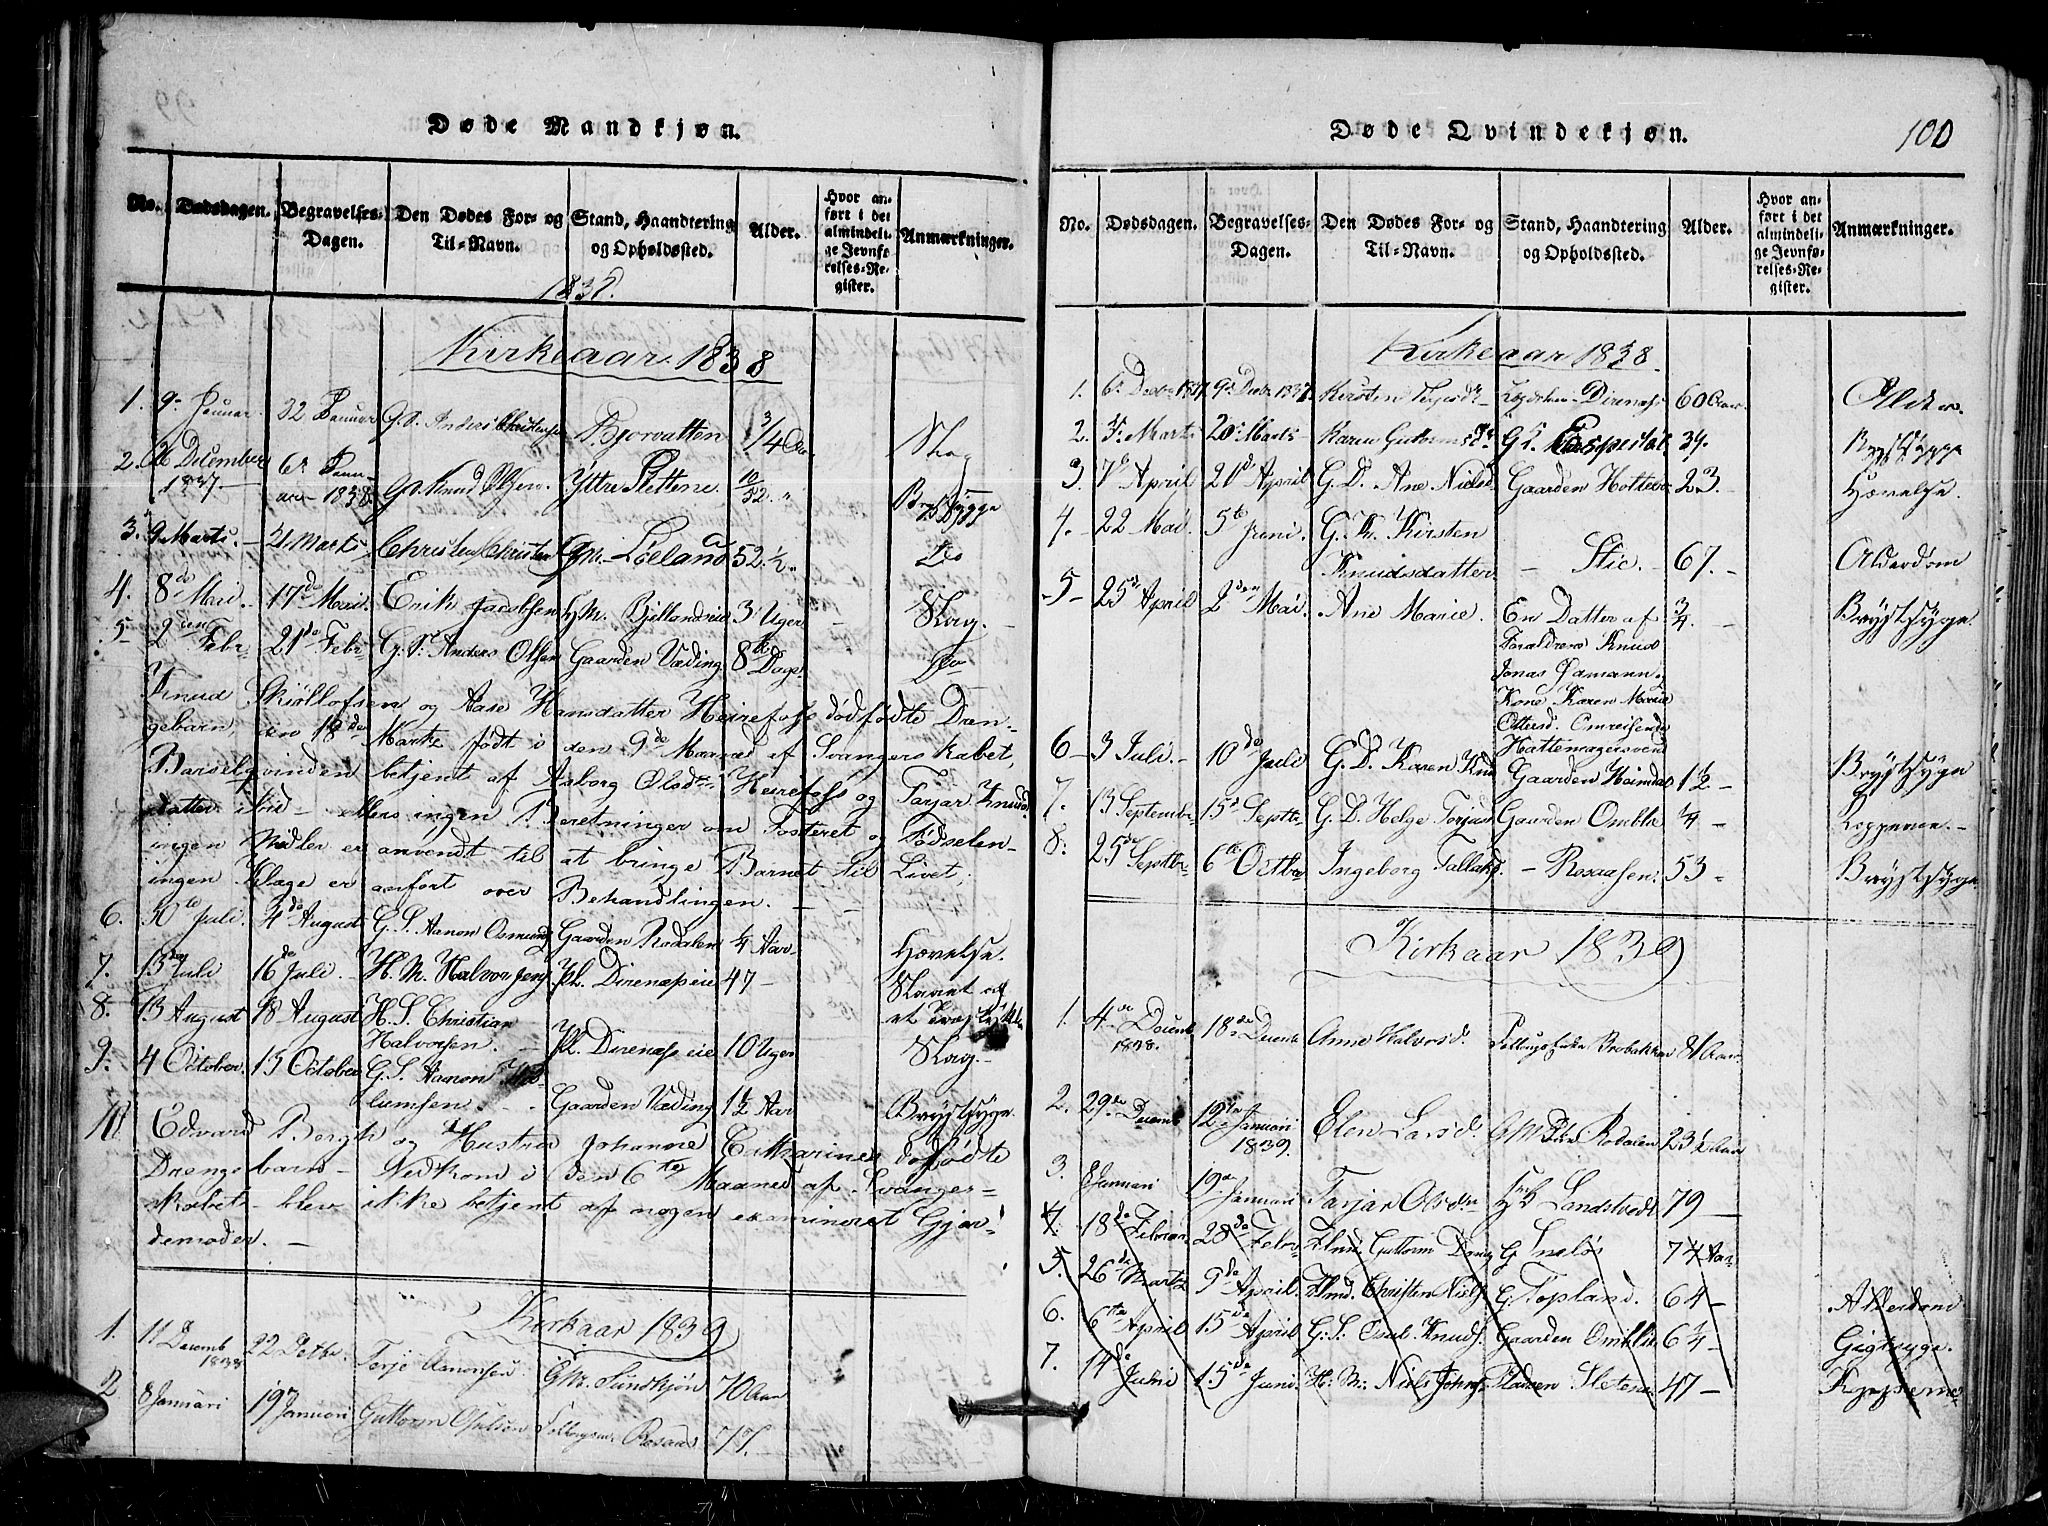 Døde Mandkjøn.
No. Dødsdagen. Begravelses-Dagen. Den Dødes For- og Til-Navn. Stand, Haandtering og Opholdssted. Alder. Hvor anført i det almindelige Jevnførelses-Register. Anmærkninger.
1838.
Kirkeaar 1838
1. 9 Januar. 22 Januar G. S. Anders Christensen Bjorvatten 3/4
2. 26 December 1837 6 Januar 1838 Knud Ytre Slettene. 10/52 Brystsyge
3. 9 Marts. 21 Marts Christen Christens Gm. Loeland 52 1/2 Do
4. 8de Mai. 17de Mai. Erik Jacobsen H.M. Bjellandseie 3 Uger Slag.
5 2den Febr. 21de Febr. G. S. Anders Olsen Gaarden Væding 8te Dage Do
Knud Skiøllofsen og Aase Hansdatter Heirefoss dødfødte Dren-
gebarn, den 18de Martz født i den 9de Maaned af Svangerskabet,
Barselqvinden betjent af Aasborg Olsdr. Heirefoss og Tarjer Knuds
datter ibid - Ellers ingen Beretninger om Fosteret og Fødselen-
ingen Midler er anvendt til at bringe Barnet til Livet;
ingen Klage er anført over Behandlingen.
6. 30te Juli. 4de August G. S. Aanon Osmund Gaarden Rodalen 1/4 Aar Hævelse.
7. 13 Juli 16de Juli. H. M. Halvor Jens Pl. Direnæs eie 47
8. 13 August 18 August H. S. Christian Halvorsen. Pl. Direnæs eie 10 Uger Slag.
9. 4 October. 15 October G. S. Aanon Gaarden Væding 1 1/2 Aar Brystsyge
10 Edvard Bergh og Hustru Johanne Cathrines dødfødte
Drengebarn - Nedkom i den 6te Maaned af Svanger=
skabet - blev ikke betjent af nogen examineret Gjor-
demoder.
Kirkaar 1839
1. 11 Decemb 1838 22 Terje Aanonsen Gm. Sundkjøn 70 Aar
2 8 Januari 19 Januari Guttorm Rosaas 77.
Døde Qvindekjøn.
100
No. Dødsdagen. Begravelses-Dagen. Den Dødes For- og Til-Navn. Stand, Haandtering og Opholdssted. Alder. Hvor anført i det almindelige Jevnførelses-Register. Anmærkninger.
Kirkeaar 1838.
1. 6 Decbr 1837 9 Decbr 1837. Kirsten Direnæs 60 Aar Alder.
2. Marts 20 Marts Karen Guttormsdr. Espestøl 39. Brystsyge
3. 7de April 21de April G. D. Ane Nielsd. Gaarden Holte 23. Hævelse.
4. 22 Mai 5te Juni. G. K. Kirsten Knudsdatter Stie. 67. Alderdom
5 25de April 2den Mai Ane Marie. En Datter af 3/4. Brystsyge
Foraldrene Knud
Jonas Hamann
Kone Karen Marie
Ottersd. Omreisende
Hattemagersvend
6 3 Juli. 10de Juli G. D. Karen Knud Gaarden Heimdal 1 1/2 Brystsyge
7. 13 September 15de Septbr G. D. Helge Torjus Gaarden Omblie 1/4 Kopperne.
8. 25de Septbr 6te Octbr Ingeborg Tallaksd. Rosaasen 53 Brystsyge
Kirkaar 1839
1. 4de Decemb 1838. 18de Decemb Anne Halvorsd. Brobakken Aar
2. 29de Decemb 12te Januari 1839. Elen Larsd. Rodalen 23 1/2 Aar
3. 8 Januari 19de Januari Tarjer Olsdr. Landstvedt 79
4. 18de Februar 28de Febr. Guttorm G. Sneløs 74 Aar
5. 26de Martz 9de April Christen Niels G. Topland. 64 Alderdom
6. 6te April 15de April G. S. Omel Knuds. Gaarden Omblie 6 1/4 Gigtsyge.
7. 14de Juni 15de Juni. H. M. Niels Johns Pladsen Sletene 47